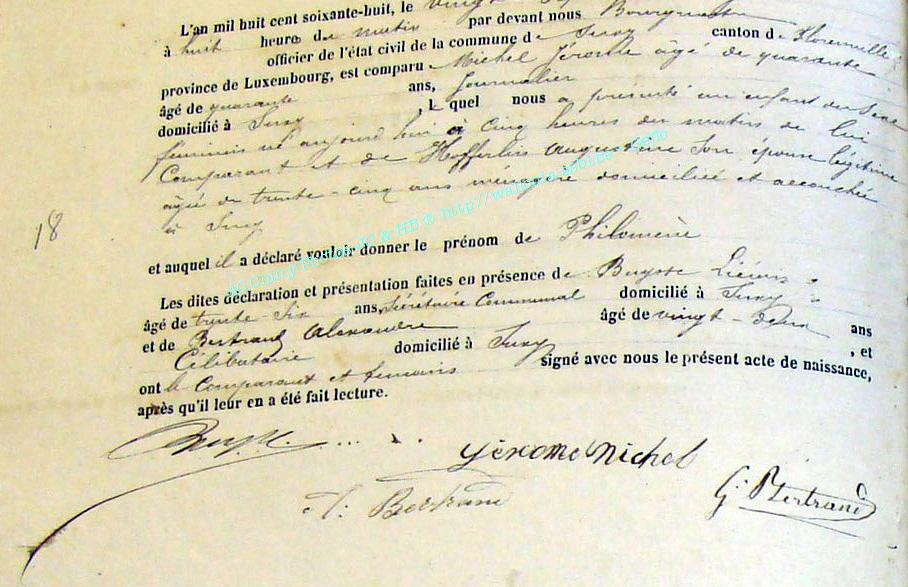 L'an mil huit cent soixante-huit, le vingt
à huit heures du matin par devant nous Bourgmestre
officier de l'état civil de la commune de Suxy canton de Florenville
province de Luxembourg, est comparu Michel Jérome âgé de quarante
âgé de quarante ans, journalier
domicilié à Suxy , lequel nous a présenté un enfant du sexe
féminin né aujourd'hui à cinq heures du matin de lui
Comparant et de Hofferlin Augustine son épouse légitime
âgée de trente-cinq ans ménagère domiciliée et accouchée
à Suxy
18
et auquel il a déclaré vouloir donner le prénom de Philomène
Les dites déclaration et présentation faites en présence de
âgé de trente-six ans, Sécrétaire Communal domicilié à Suxy
et de Bertrand Alexandre âgé de vingt-deux ans
Célibataire domicilié à Suxy , et
ont le Comparant et témoins signé avec nous le présent acte de naissance,
après qu'il leur en a été fait lecture.
Jérome Michel
A. Bertrand
G. Bertrand